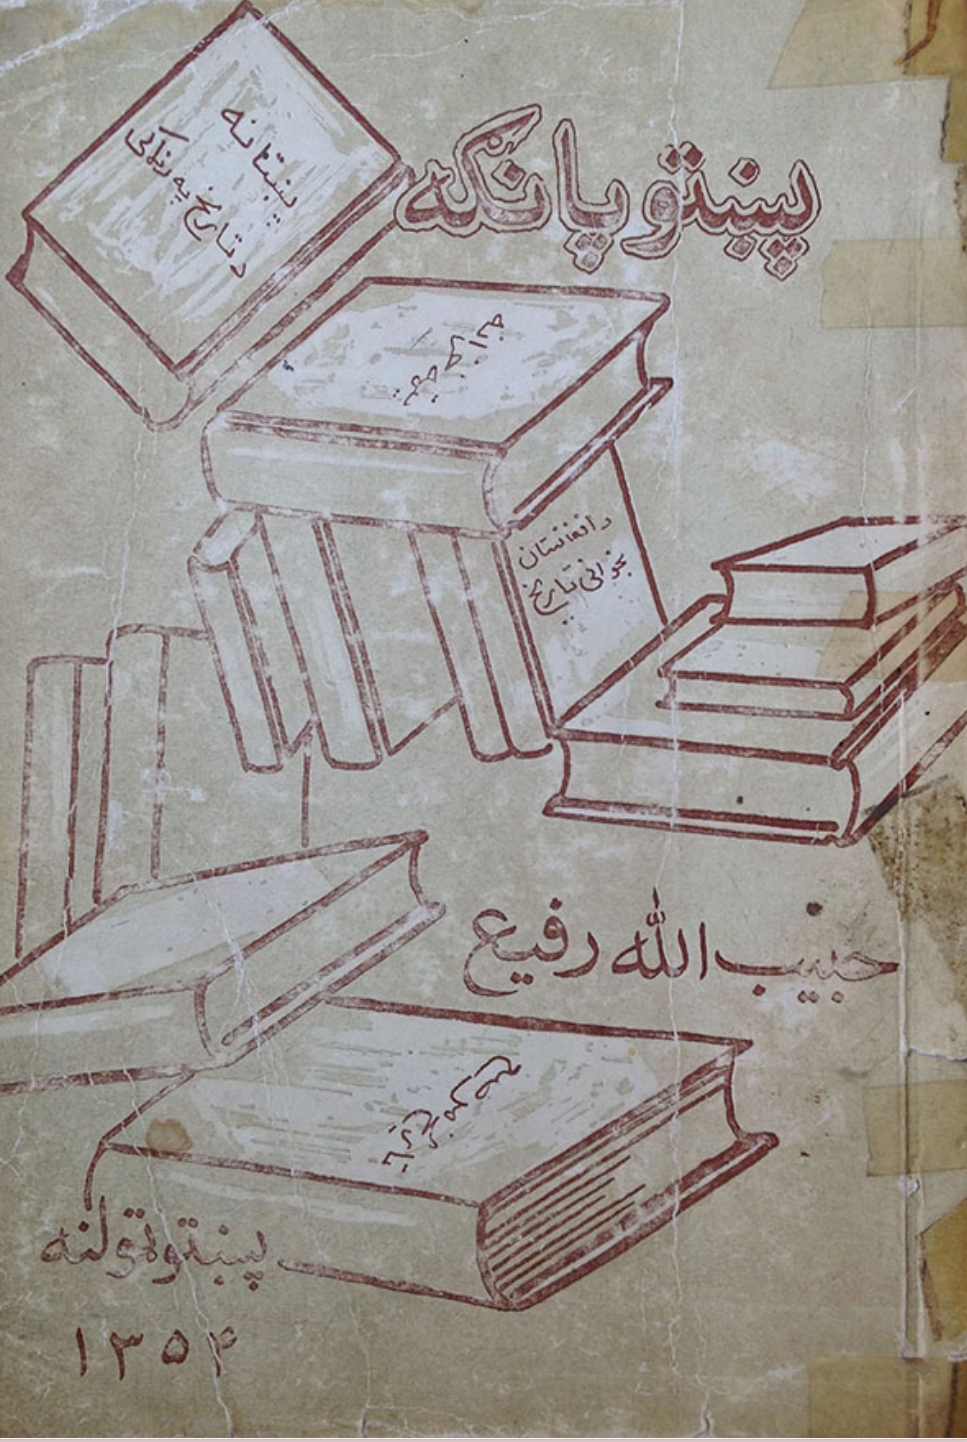 پښتو پانګه
پښتانه
د تاریخ په رڼا کې
د افغانستان
پخوانی تاریخ
حبیب الله رفیع
تاریخ مرصع
پښتو ټولنه
۱۳۵۴